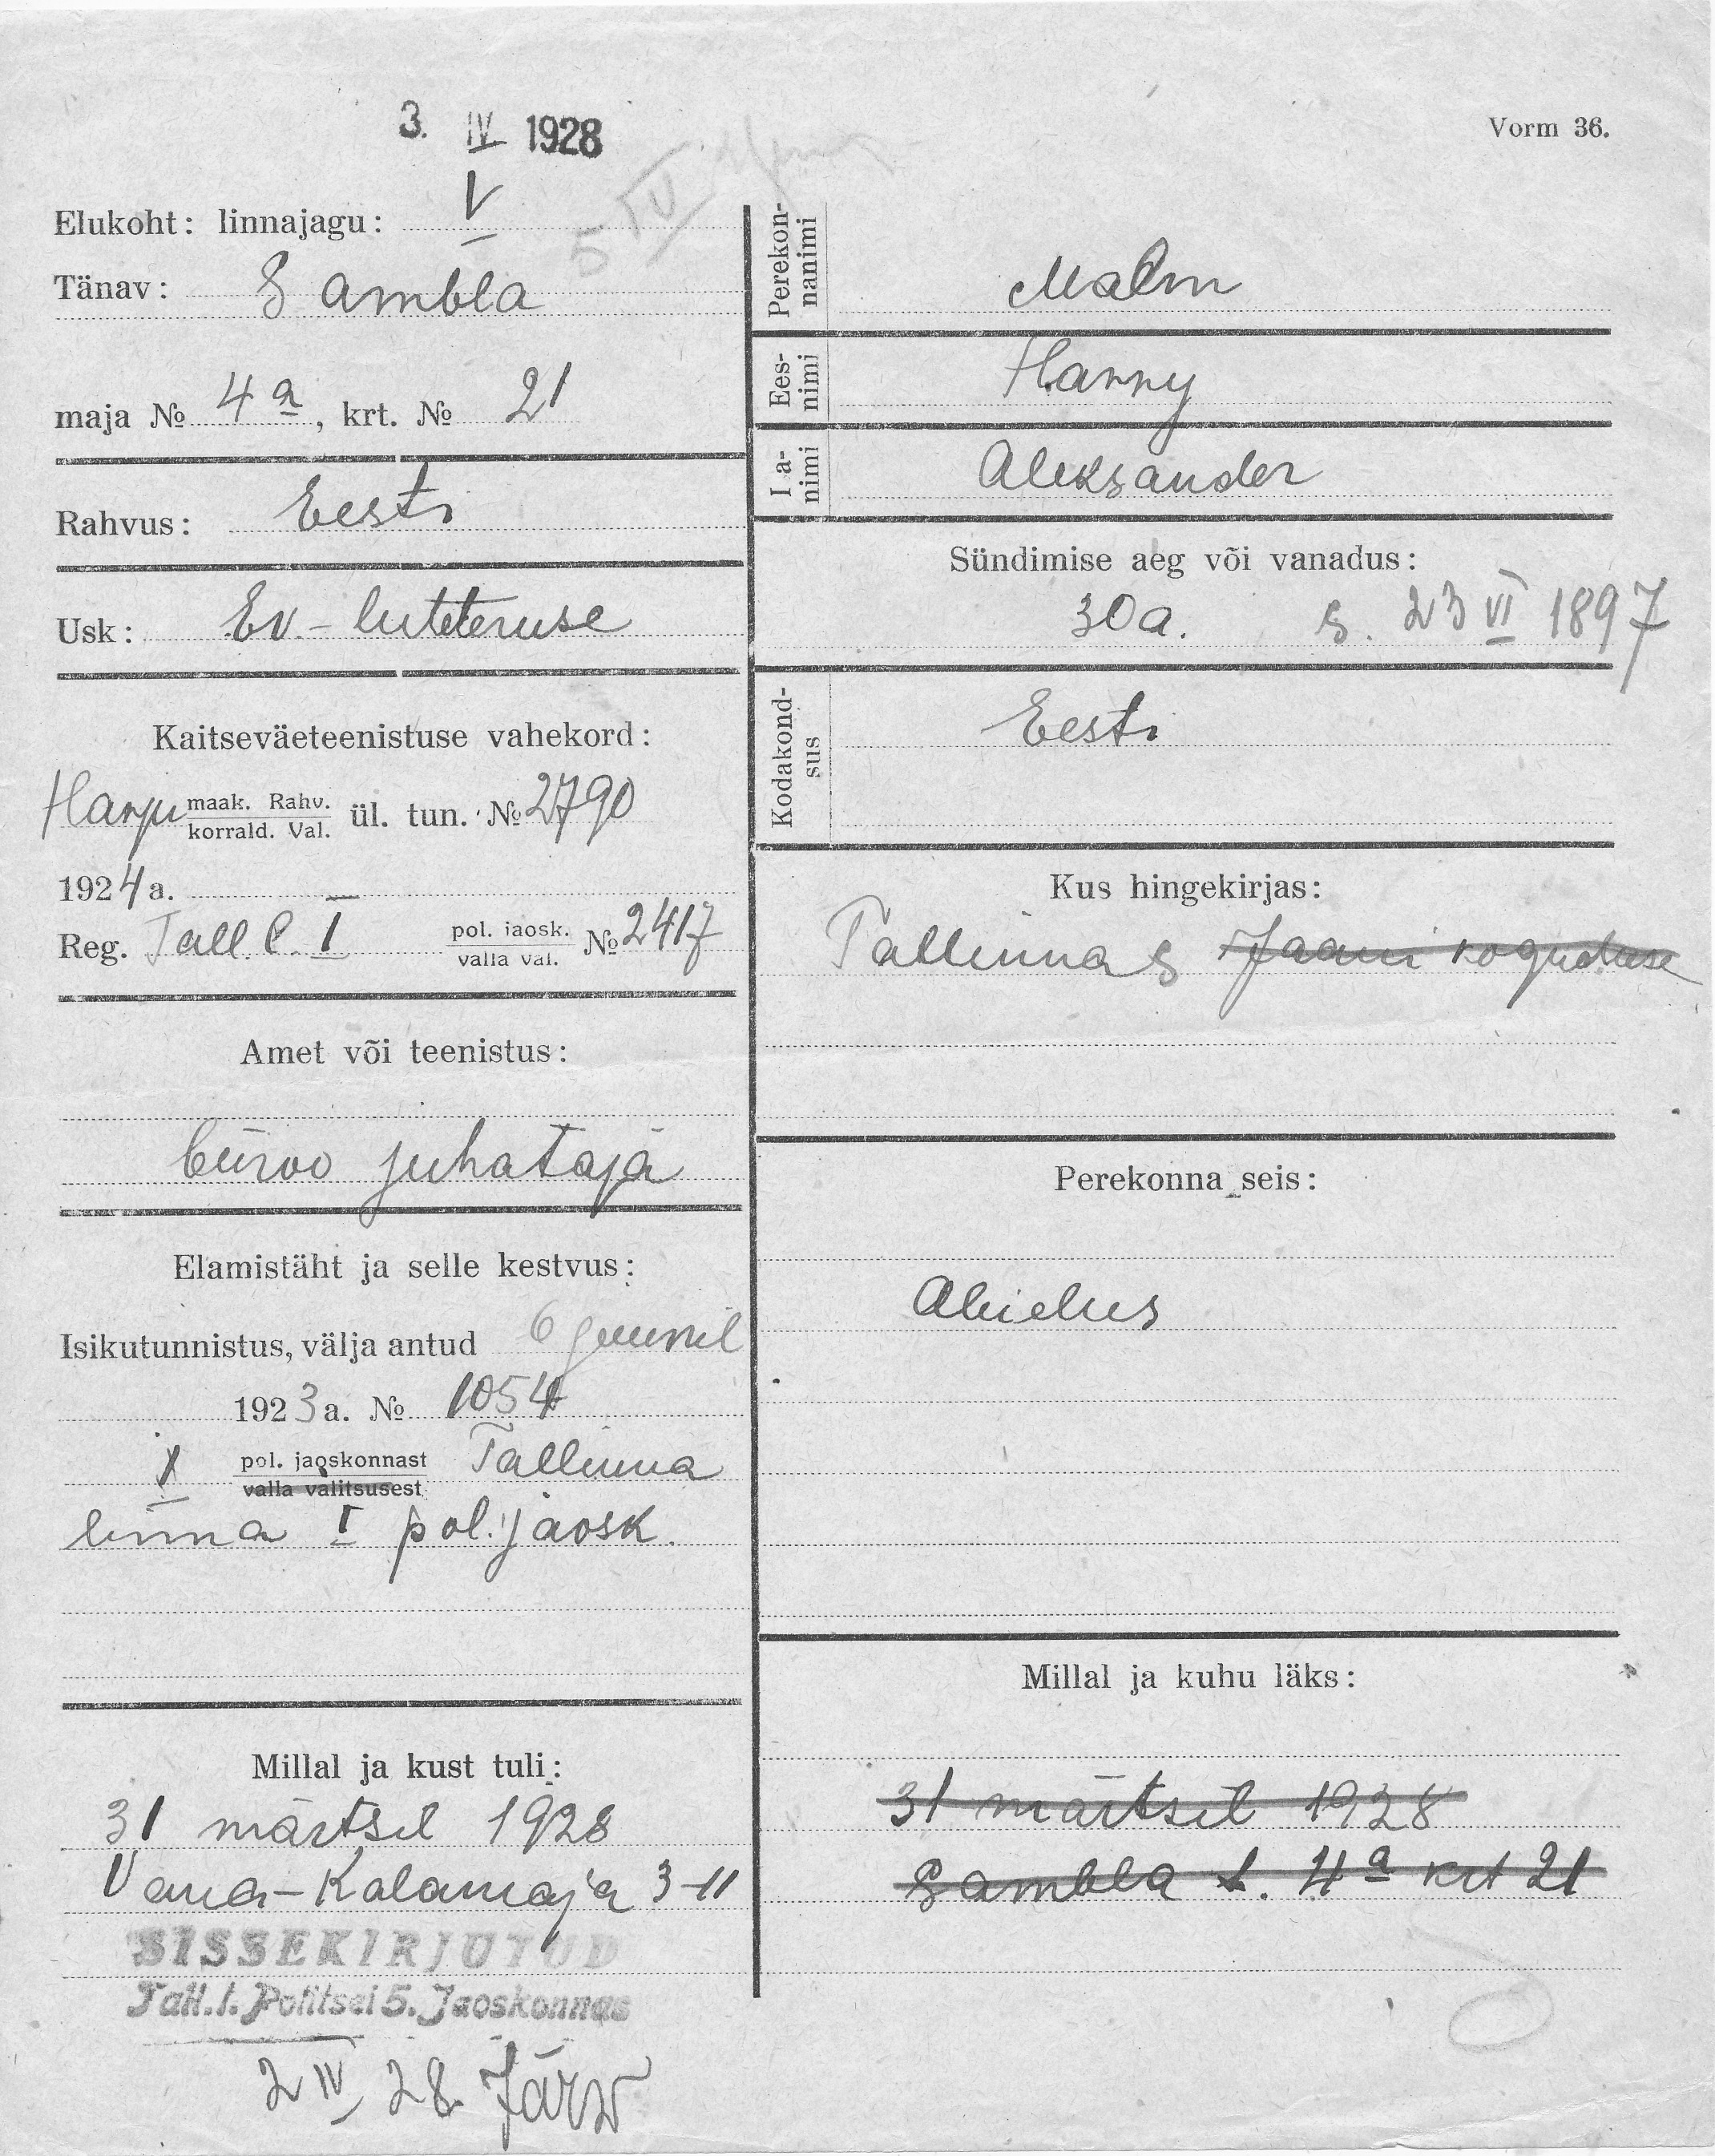 3. IV 1928
Vorm 36.
Elukoht: linnajagu: V
5 IV
Tänav: Gambla
maja № 4a, krt. № 21
Rahvus: Eesti
Usk: Ev-lutteruse
Kaitseväeteenistuse vahekord:
Harju maak. Rahv. ül. tun. № 2790
korrald. Val.
1924a.
Reg. Tall l. I pol. jaosk. № 2417
valla val.
Amet või teenistus:
büroo juhataja
Elamistäht ja selle kestvus:
Isikutunnistus, välja antud 6 juunil
1923a. № 1054
pol. jaoskonnast Tallinna
valla valitsusest
linna I pol. jaosk.
Millal ja kust tuli:
31 märtsil 1928
Vana-Kalamaja 3-11
SISSEKIRJUTUD
Tall. l. Politsei 5. Jaoskonnas
2 IV 28. Järw
Perekon-
nanimi
Malm
Ees-
nimi
Harry
Isa-
nimi
Aleksander
Sündimise aeg või vanadus:
30 a. s. 23 VI 1897
Kodakond-
sus
Eesti
Kus hingekirjas:
Tallinnas Jaani koguduse
Perekonna seis:
Abielus
Millal ja kuhu läks:
31 märtsil 1928
Gambla t. 4a krt 21